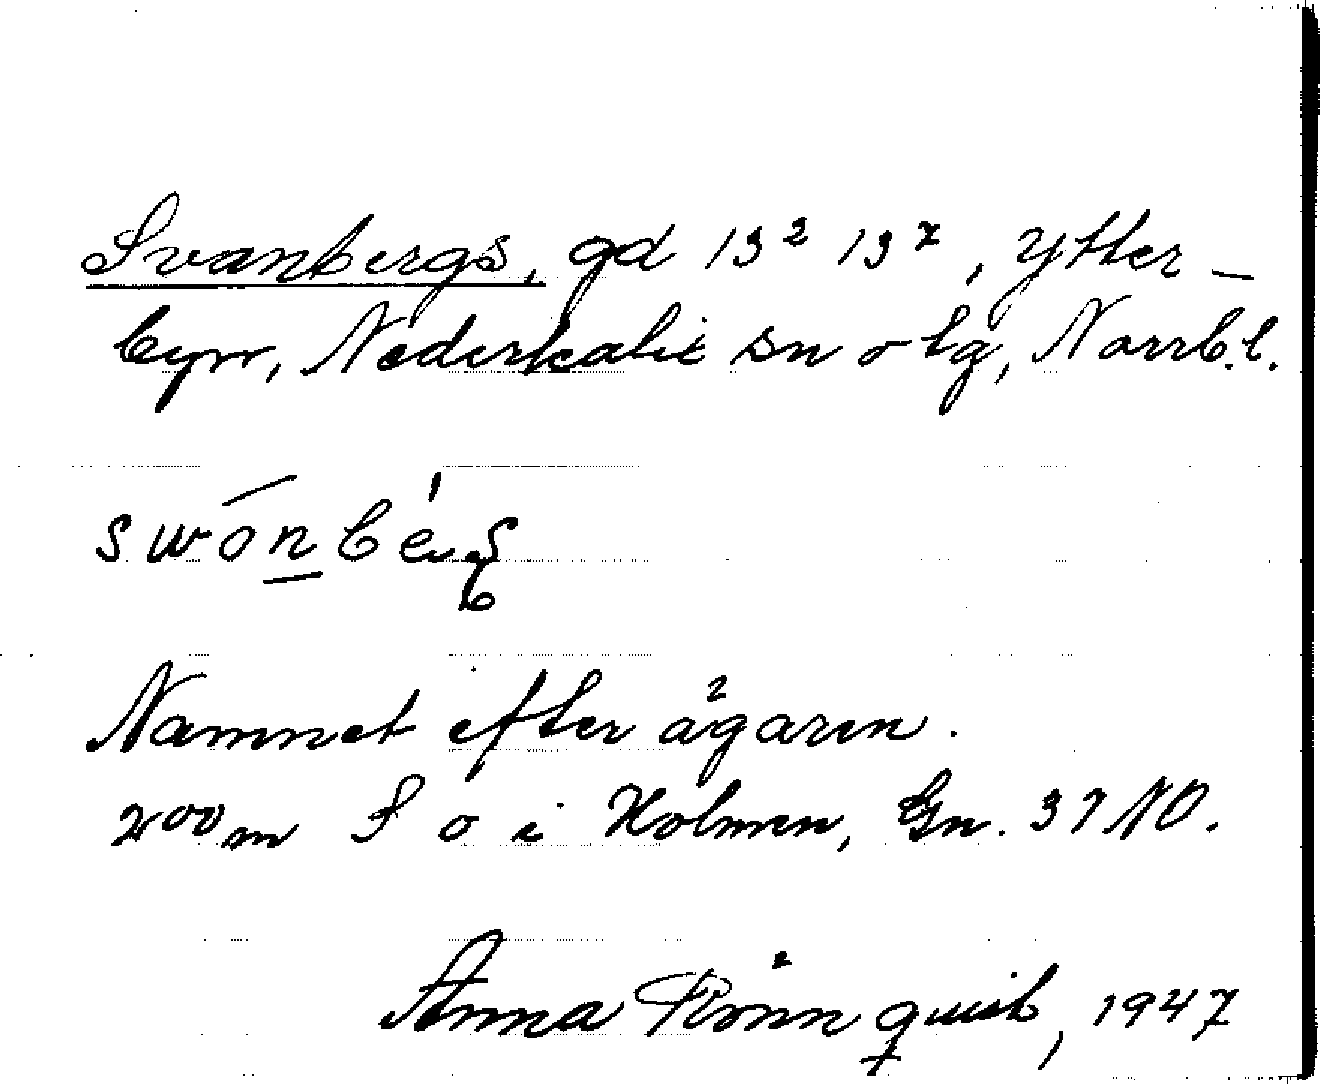 Svanbergs, gd 13² 13⁷, Ytter-
byn, Nederkalix sn o tg, Norrb.l.
Namnet efter ägaren.
200 m S o i Holmen, Gn. 37 NO.
Anna Rönnquist, 1947